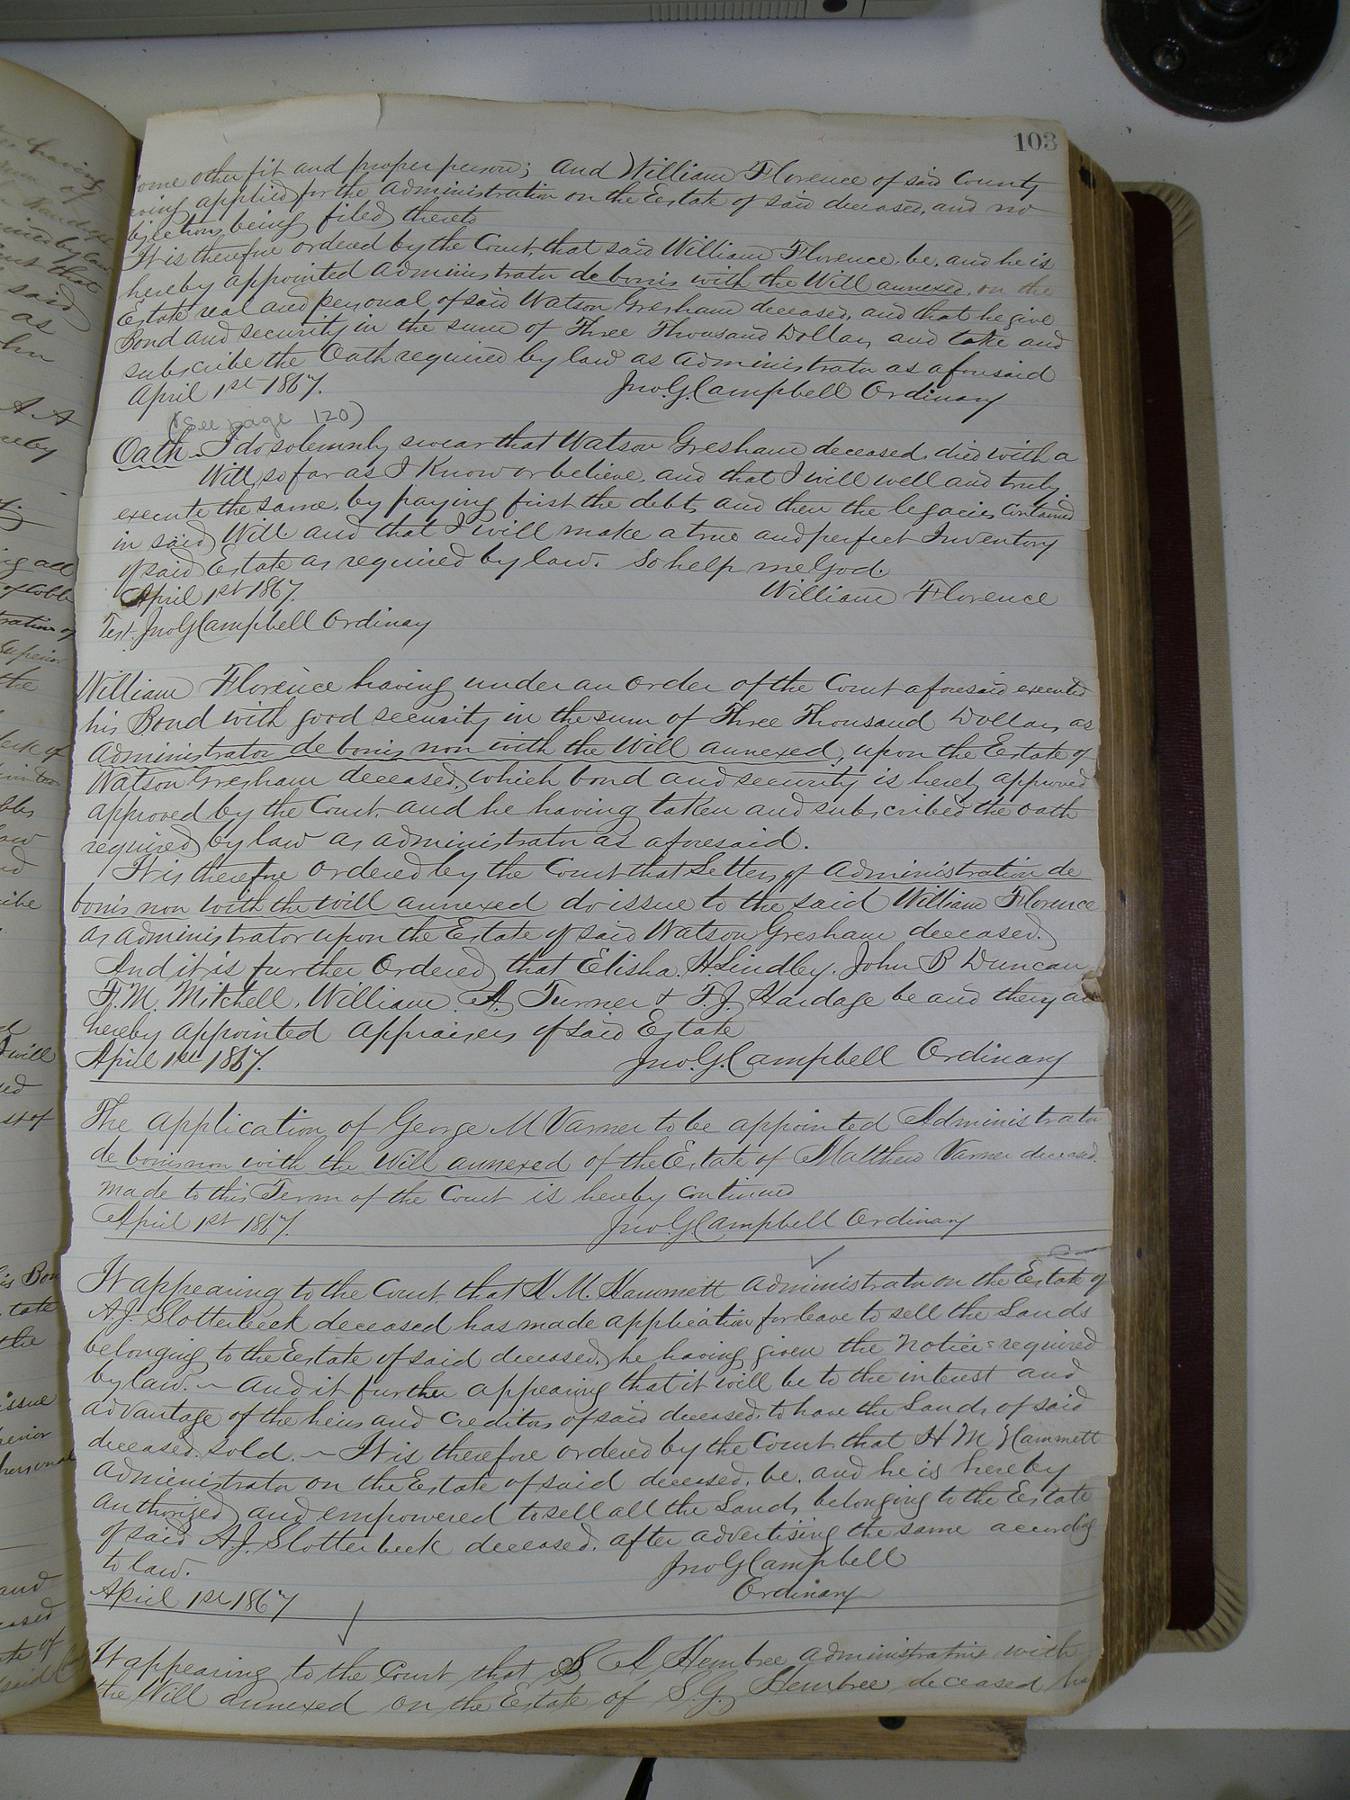 103
ome other fit and proper person; and William Florence of said County
ving applied for the administration on the Estate of said deceased, and no
bjections being filed thereto
It is therefore ordered by the Court, that said William Florence, be, and he is
hereby appointed administrator de bonis with the Will annexed, on the
Estate real and personal of said Watson Gresham deceased, and that he give
Bond and security in the sum of Three Thousand Dollars, and take and
subscribe the Oath required by law as administrator as aforesaid
April 1st 1867. Jno. G. Campbell Ordinary
(See page 120)
Oath - I do solemnly swear that Watson Gresham deceased, died with a
Will, so far as I Know or believe, and that I will well and truly
execute the same, by paying first the debts and then the legacies contained
in said Will and that I will make a true and perfect Inventory
of said Estate as required by law. So help me God.
April 1st 1867. William Florence
Test. Jno G Campbell Ordinary
William Florence having under an order of the Court aforesaid executed
his Bond with good security in the sum of Three Thousand Dollars, as
administrator de bonis non with the Will annexed, upon the Estate of
Watson Gresham deceased, which bond and security is hereby approved
approved by the Court, and he having taken and subscribed the oath
required by law as administrator as aforesaid.
It is therefore ordered by the Court that Letters of administration de
bonis non with the will annexed do issue to the said William Florence
as administrator upon the Estate of said Watson Gresham deceased.
And it is further Ordered, that Elisha H Lindley, John B Duncan,
F. M. Mitchell, William A. Turner & F. J. Hardage be and they are
hereby appointed appraisers of said Estate
April 1st 1867. Jno. G. Campbell Ordinary
The application of George M Varner to be appointed Administrator
de bonis non with the Will annexed of the Estate of Matthew Varner deceased.
made to this Term of the Court is hereby continued
April 1st 1867. Jno G Campbell Ordinary
It appearing to the Court, that H. M. Hammett administrator on the Estate of
A. J. Slotterbeck deceased has made application for leave to sell the Lands
belonging to the Estate of said deceased, he having given the notice required
by law. - And it further appearing that it will be to the interest and
advantage of the heirs and creditors of said deceased, to have the Lands of said
deceased sold. - It is therefore ordered by the Court that H M Hammett
administrator on the Estate of said deceased, be, and he is hereby
authorized and empowered to sell all the Lands belonging to the Estate
of said A. J. Slotterbeck deceased, after advertising the same according
to law. Jno G Campbell
April 1st 1867 Ordinary
It appearing to the Court that S A Hembree administratrix with
the Will annexed on the Estate of S. G. Hembree deceased ha